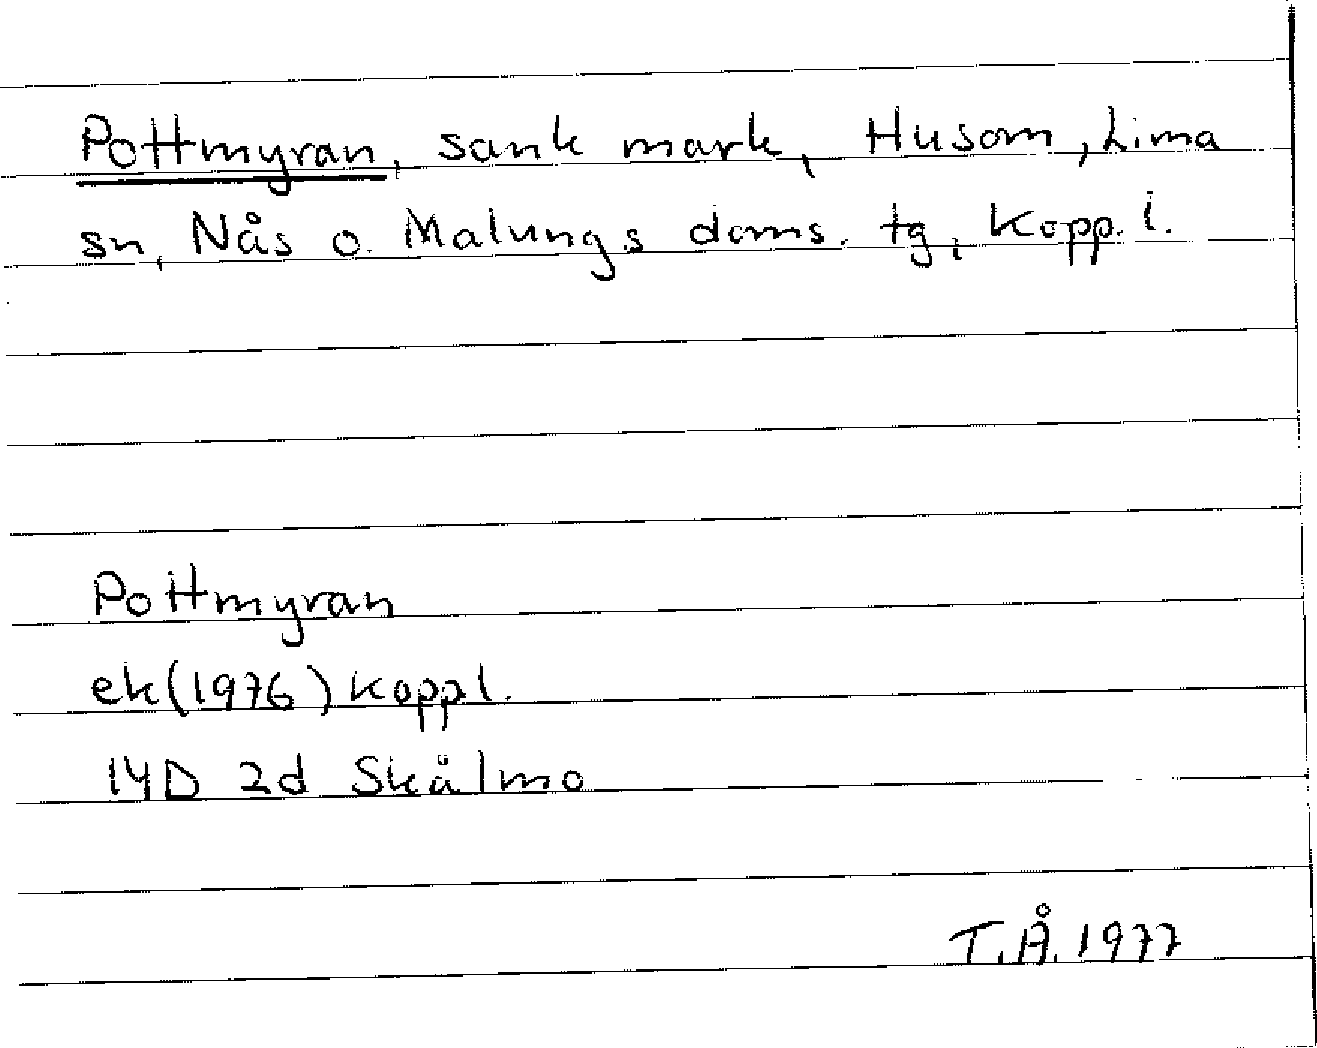 Pottmyran, sank mark, Husom, Lima
sn, Nås o. Malungs doms. tg, Kopp. l.
Pottmyran
ek(1976) Koppl.
14D 2d Skålmo
T.Å. 1977